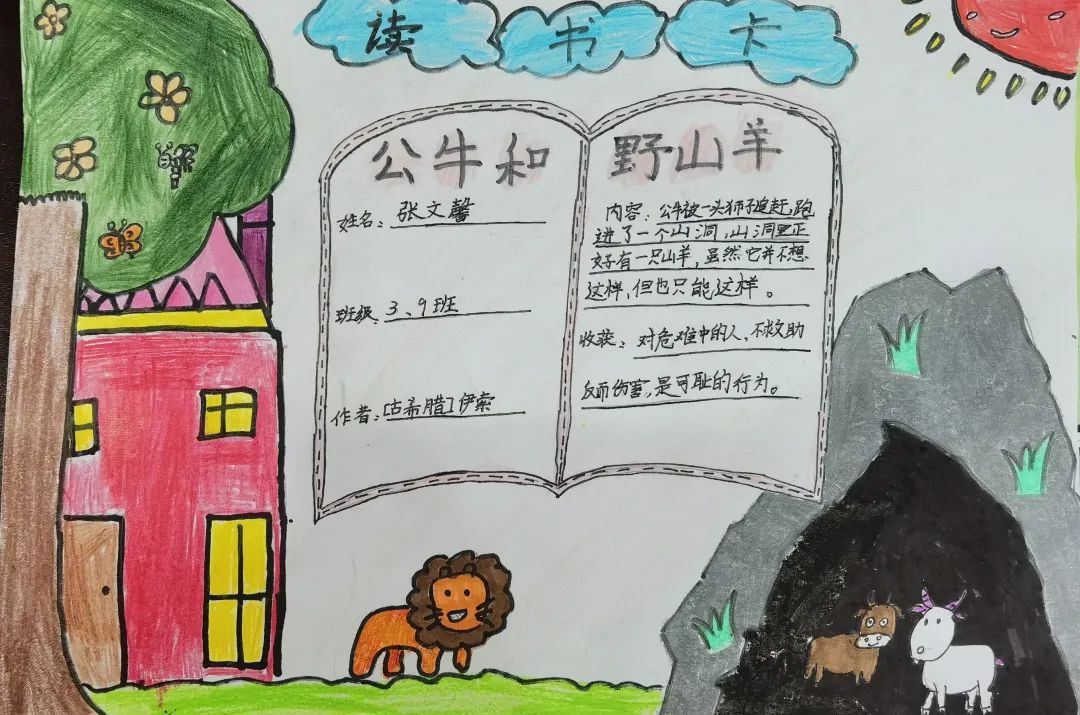 读书卡
公牛和
野山羊
姓名：张文馨
班级：3、9班
作者：[古希腊]伊索
内容：公牛被一头狮子追赶，跑
进了一个山洞，山洞里正
好有一只山羊，虽然它并不想
这样，但也只能这样。
收获：对危难中的人，不救助
反而伤害，是可耻的行为。